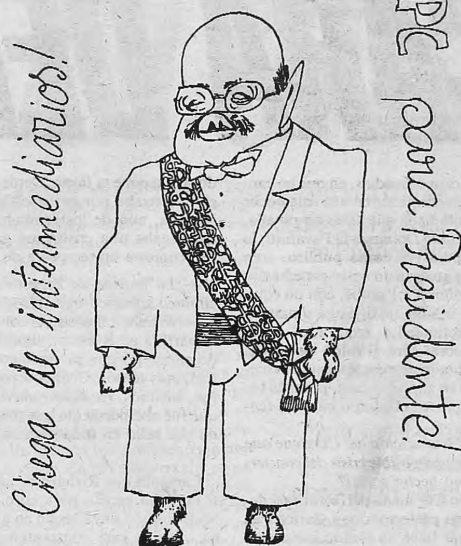 Chega de intermediários!
PC para Presidente!